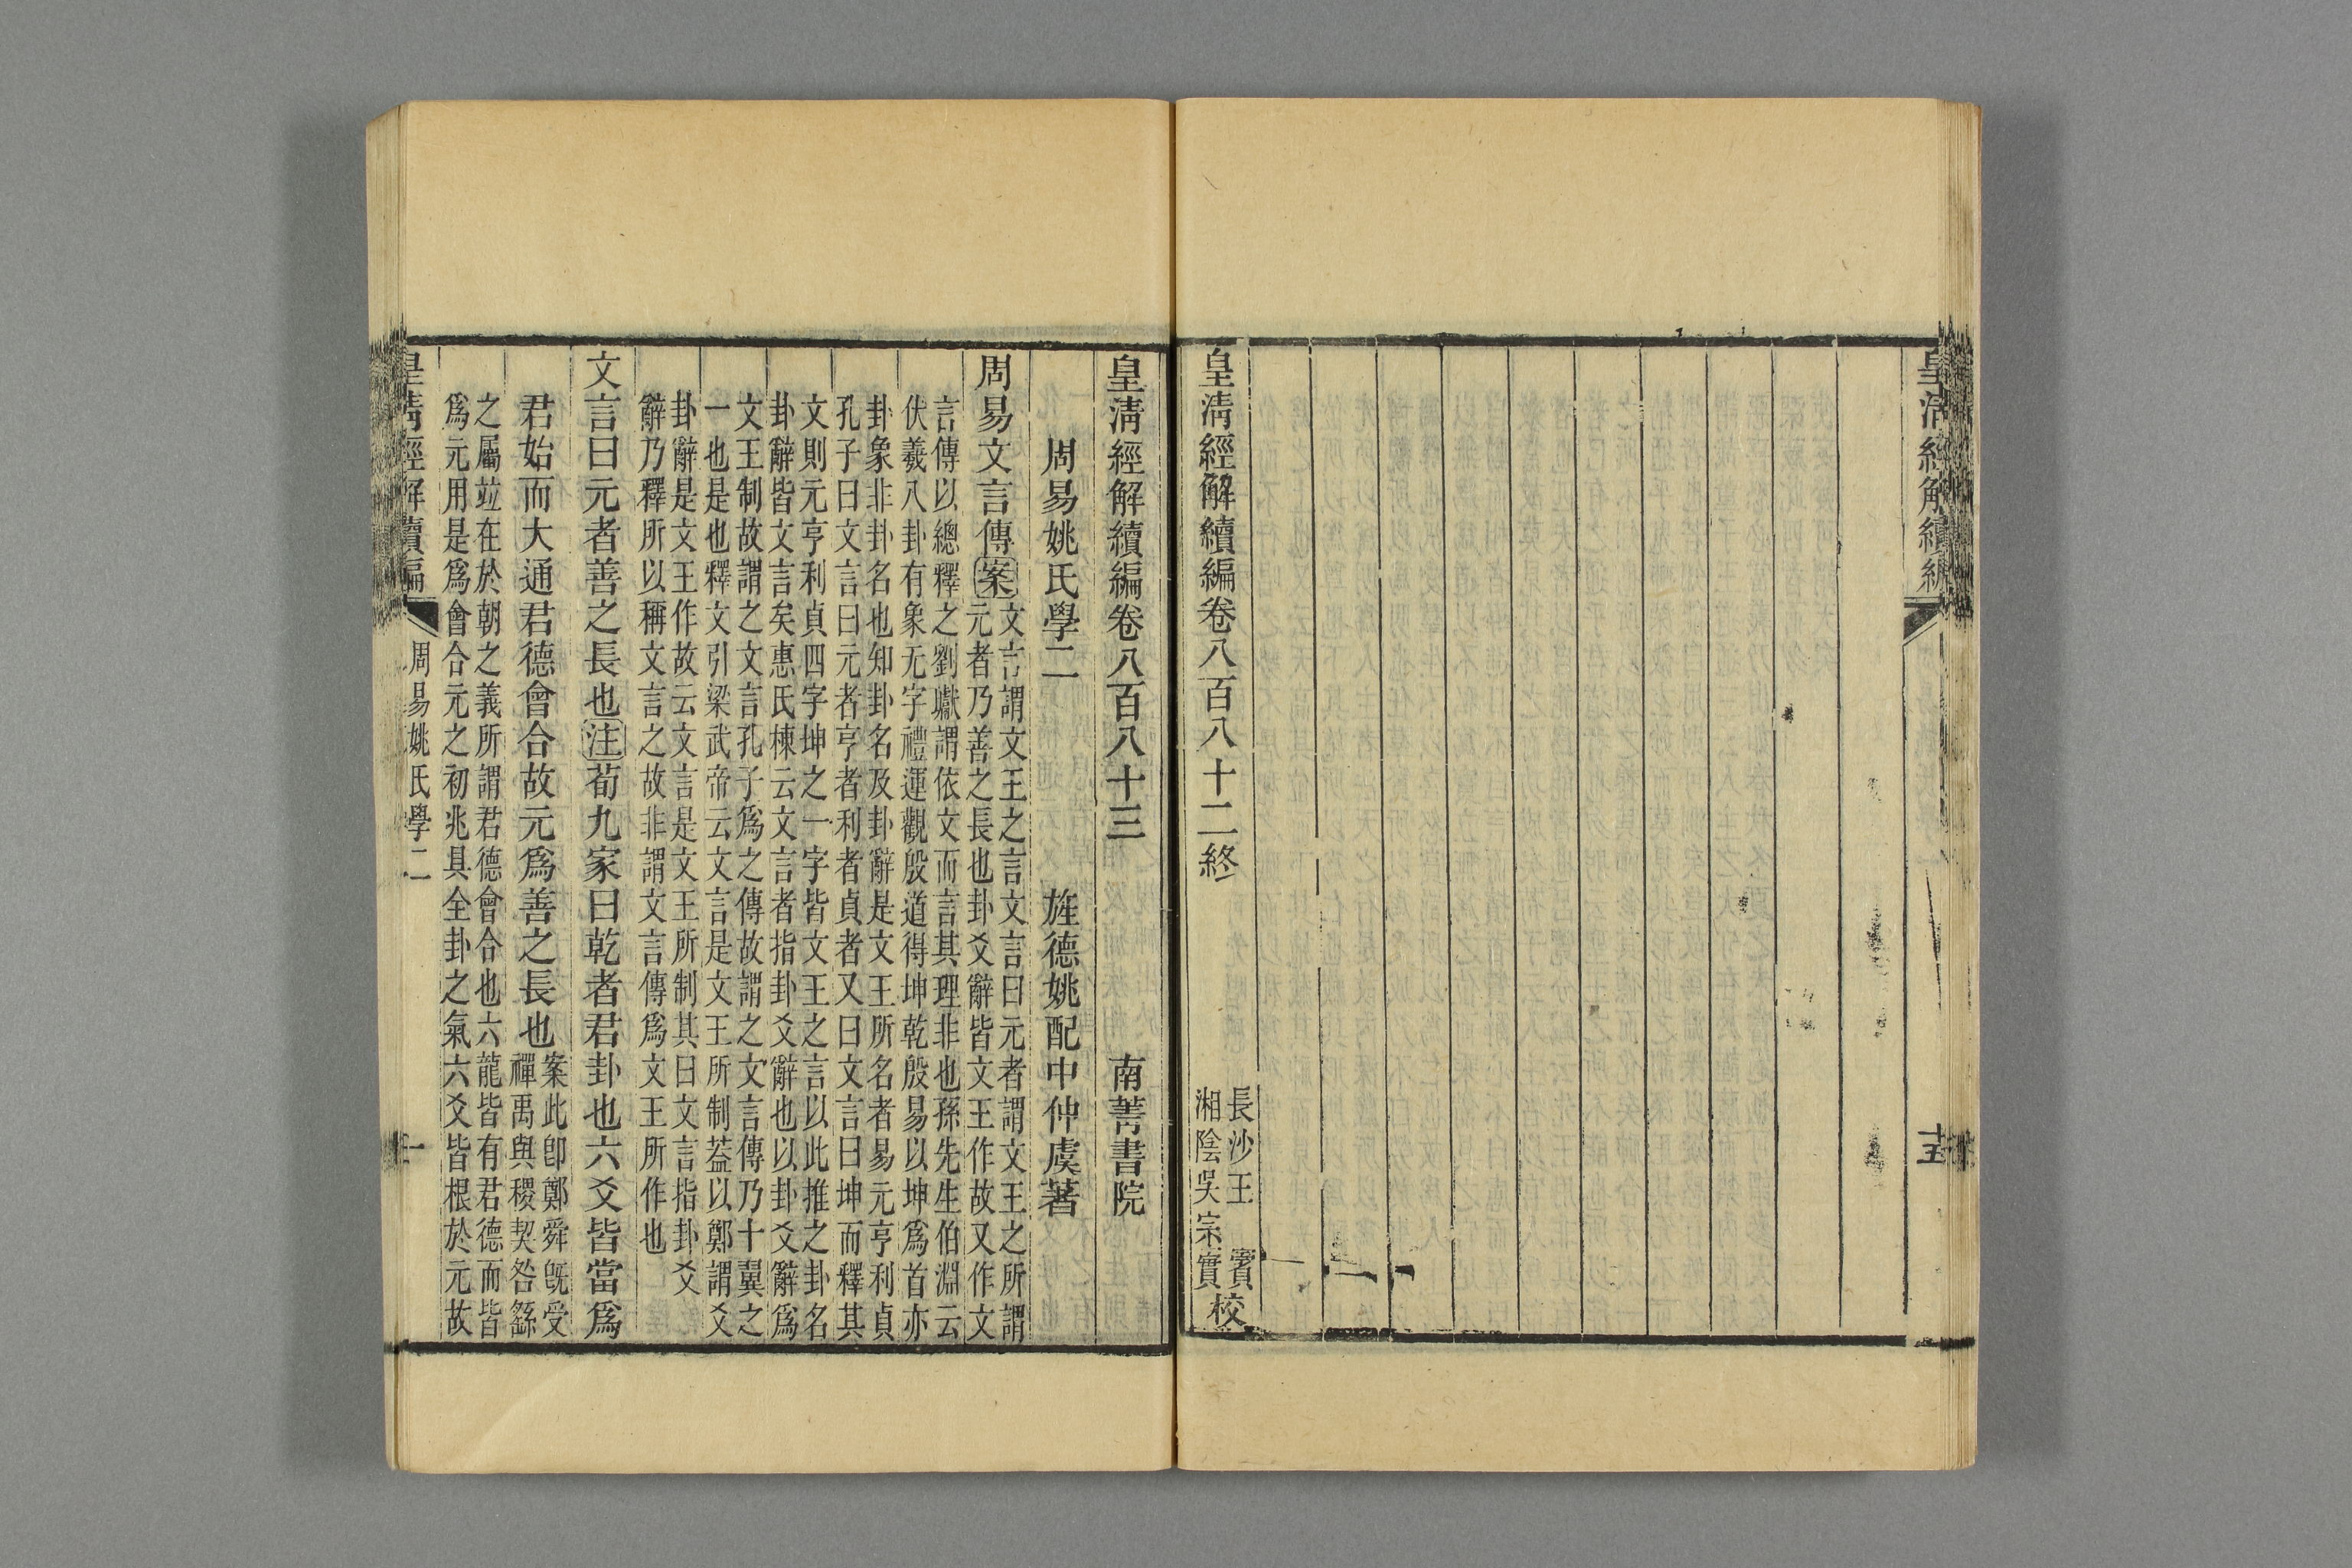 皇清經解續編
十五
皇清經解續編卷八百八十二終
長沙王 賓
湘陰吳宗實
校
皇清經解續編卷八百八十三 南菁書院
周易姚氏學二 旌德姚配中仲虞著
周易文言傳案
文言謂文王之言文言曰元者謂文王之所謂
元者乃善之長也卦爻辭皆文王作故又作文
言傳以總釋之劉巘謂依文而言其理非也孫先生伯淵云
伏羲八卦有象无字禮運觀殷道得坤乾殷易以坤爲首亦
卦象非卦名也知卦名及卦辭是文王所名者易元亨利貞
孔子曰文言曰元者亨者利者貞者又曰文言曰坤而釋其
文則元亨利貞四字坤之一字皆文王之言以此推之卦名
卦辭皆文言矣惠氏棟云文言者指卦爻辭也以卦爻辭爲
文王制故謂之文言孔子爲之傳故謂之文言傳乃十翼之
一也是也釋文引梁武帝云文言是文王所制葢以鄭謂爻
卦辭是文王作故云文言是文王所制其曰文言指卦爻
辭乃釋所以稱文言之故非謂文言傳爲文王所作也
文言曰元者善之長也注荀九家曰乾者君卦也六爻皆當爲
君始而大通君德會合故元爲善之長也
案此卽鄭舜旣受
禪禹與稷契咎繇
之屬竝在於朝之義所謂君德會合也六龍皆有君德而皆
爲元用是爲會合元之初兆具全卦之氣六爻皆根於元故
皇淸經解續編
周易姚氏學二
一